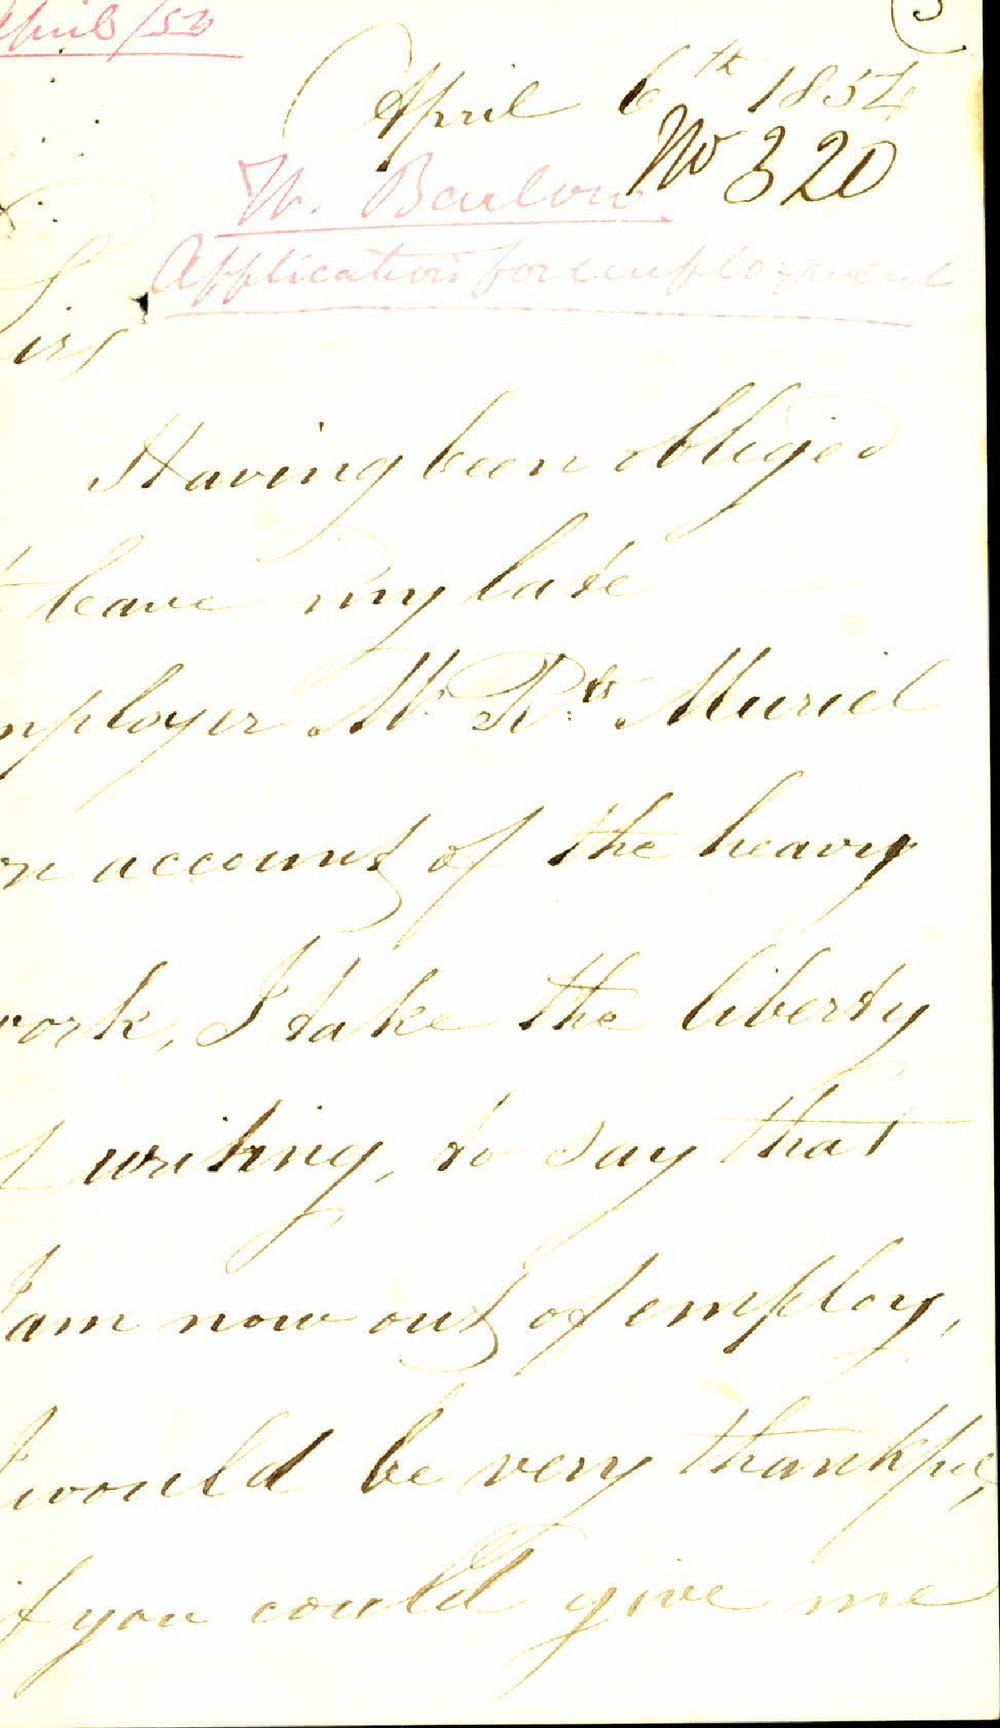 April/54
April 6th 1854
No 320
W. Barlow
Application for employment
Sirs
Having been obliged
leave my late
mployer Mr. Rt. Muriel
on account of the heavy
work, I take the liberty
f writing, to say that
I am now out of employ,
I would be very thankful,
if you could give me